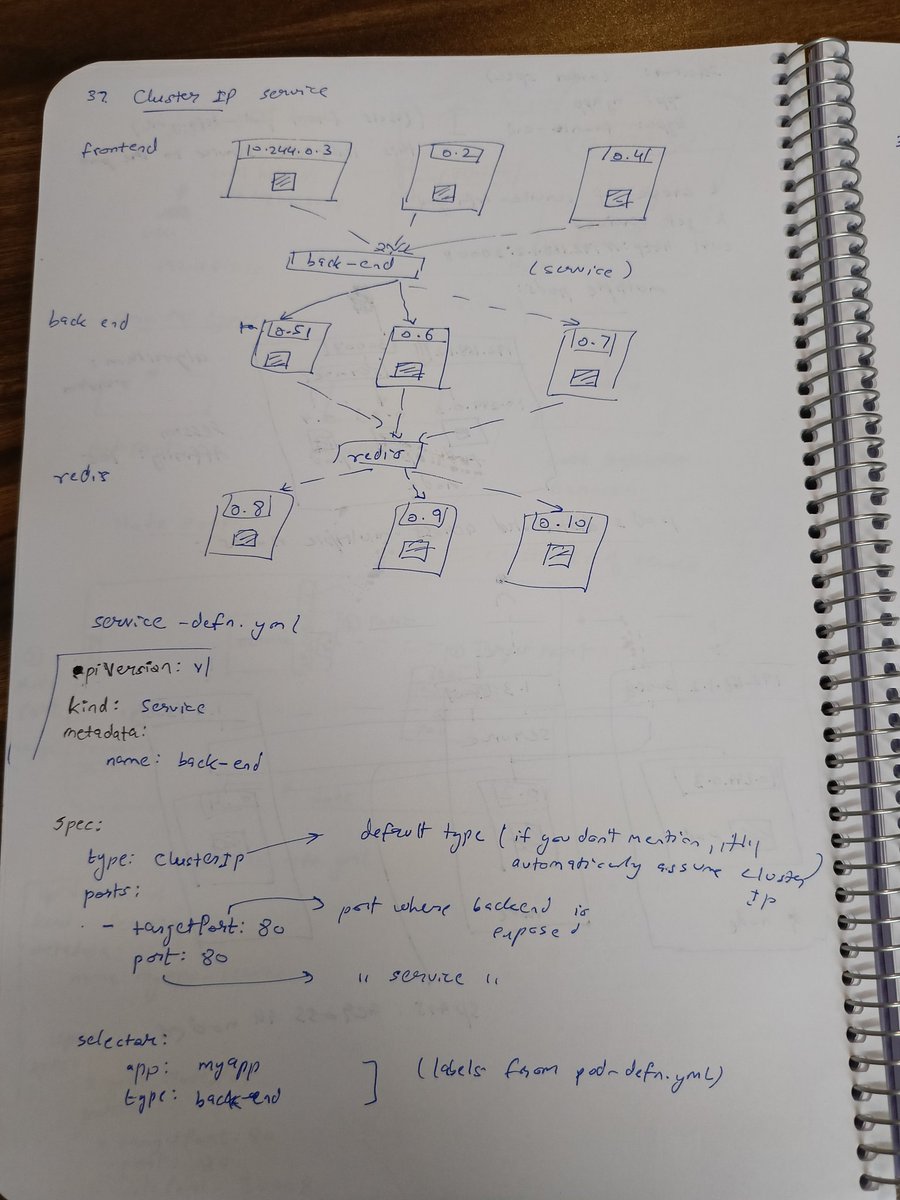 37 Cluster IP service
frontend
10.244.0.3
0.2
0.4
back-end
(service)
back end
0.5
0.6
0.7
redis
redis
0.8
0.9
0.10
service-defn.yml
apiVersion: v1
kind: Service
metadata:
name: back-end
spec:
type: ClusterIP
default type (if you don't mention, it'll
automatically assume cluster
IP)
ports:
- targetPort: 80
port where backend is
exposed
port: 80
" service "
selector:
app: myapp
type: back-end
(labels from pod-defn.yml)